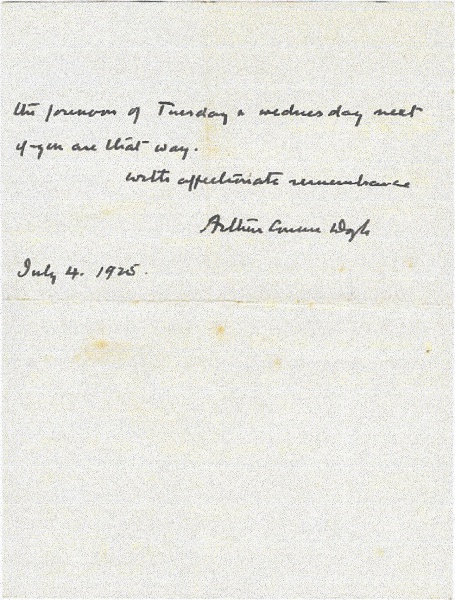 the forenoon of Tuesday & wednesday next
if you are that way.
with affectionate remembrance
Arthur Conan Doyle
July 4. 1925.